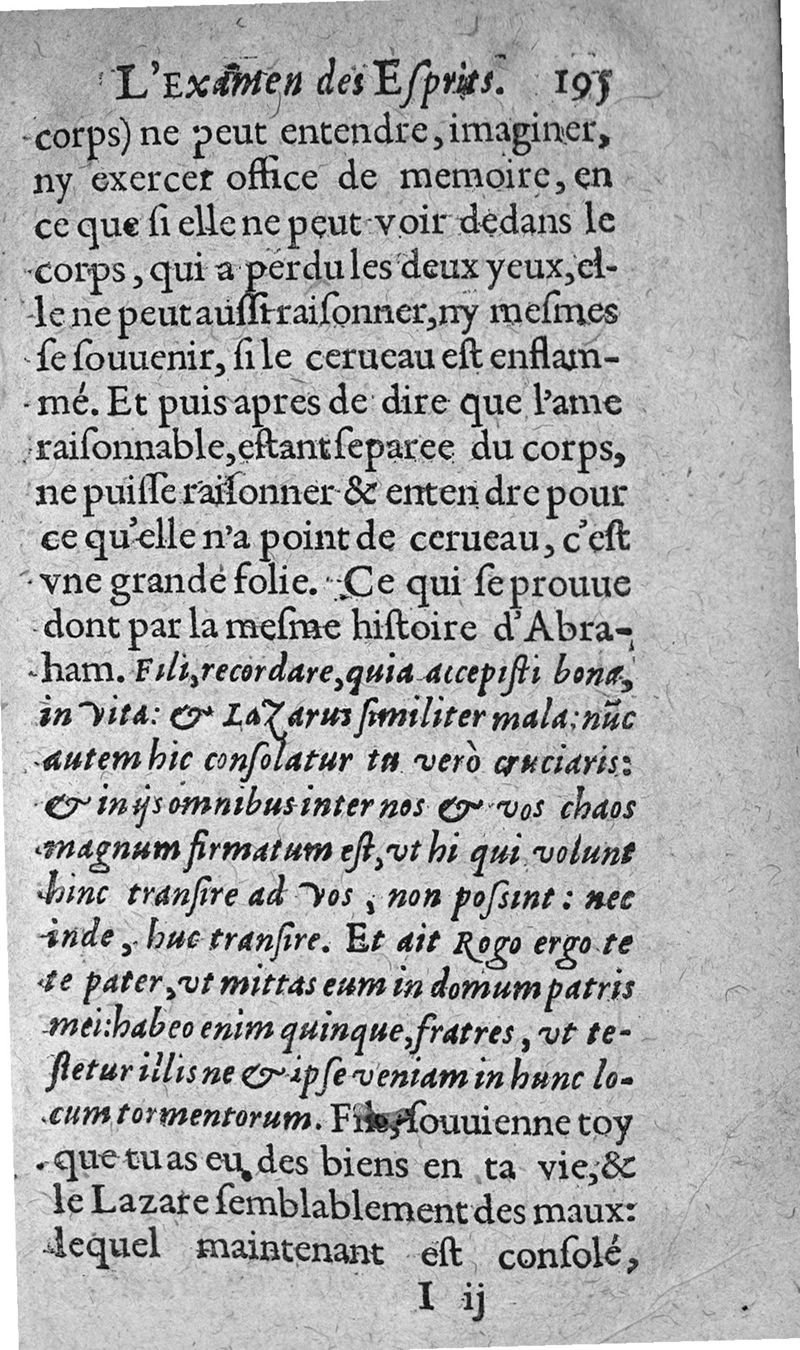 L'Examen des Eſprits. 195
corps) ne peut entendre, imaginer,
ny exercer office de memoire, en
ce que ſi elle ne peut voir dedans le
corps, qui a perdu les deux yeux, el-
le ne peut auſſi raiſonner, ny meſmes
ſe ſouuenir, ſi le cerueau eſt enflam-
mé. Et puis apres de dire que l'ame
raiſonnable, eſtant ſeparee du corps,
ne puiſſe raiſonner & entendre pour
ce qu'elle n'a point de cerueau, c'eſt
vne grande folie. Ce qui ſe prouue
dont par la meſme hiſtoire d'Abra-
ham. Fili, recordare, quia accepiſti bona,
in vita: & Lazarus ſimiliter mala: nũc
autem hic conſolatur tu verò cruciaris:
& in ijs omnibus inter nos & vos chaos
magnum firmatum eſt, vt hi qui volunt
hinc tranſire ad vos, non poſsint: nec
inde, huc tranſire. Et ait Rogo ergo te
te pater, vt mittas eum in domum patris
mei: habeo enim quinque, fratres, vt te-
ſtetur illis ne & ipſe veniam in hunc lo-
cum tormentorum. ſouuienne toy
que tu as eu des biens en ta vie, &
le Lazare ſemblablement des maux:
lequel maintenant eſt conſolé,
I ij